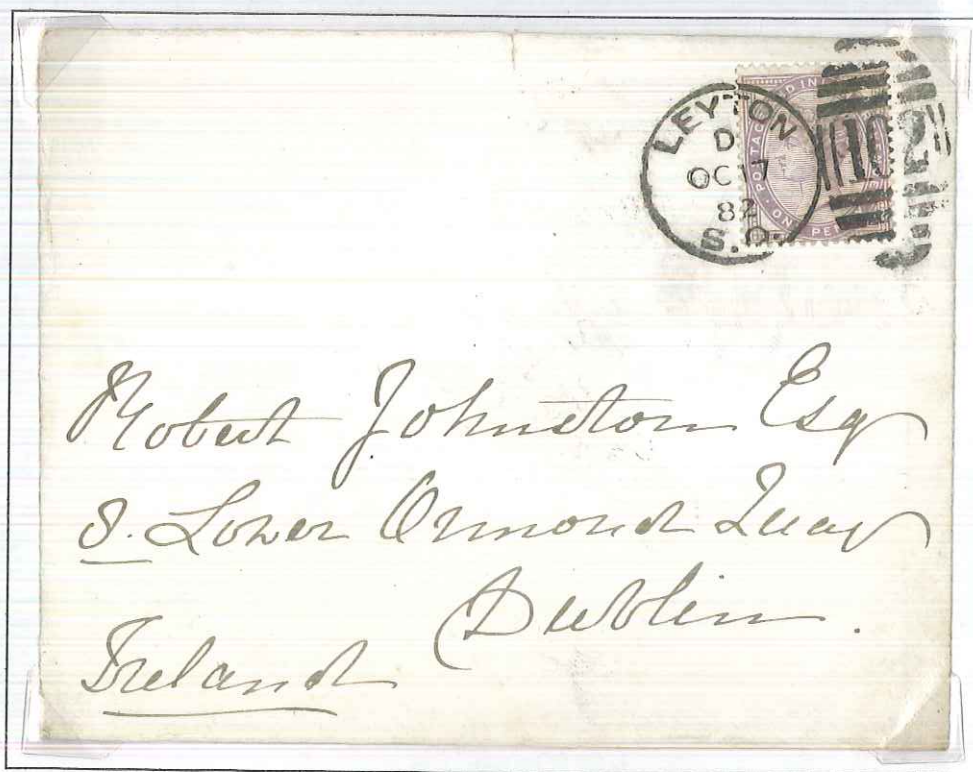 LEYTON
D
OC 17
82
S.O.
102
POSTAGE AND INLAND
ONE PENNY
Robert Johnston Esq
8. Lower Ormond Quay
Dublin.
Ireland